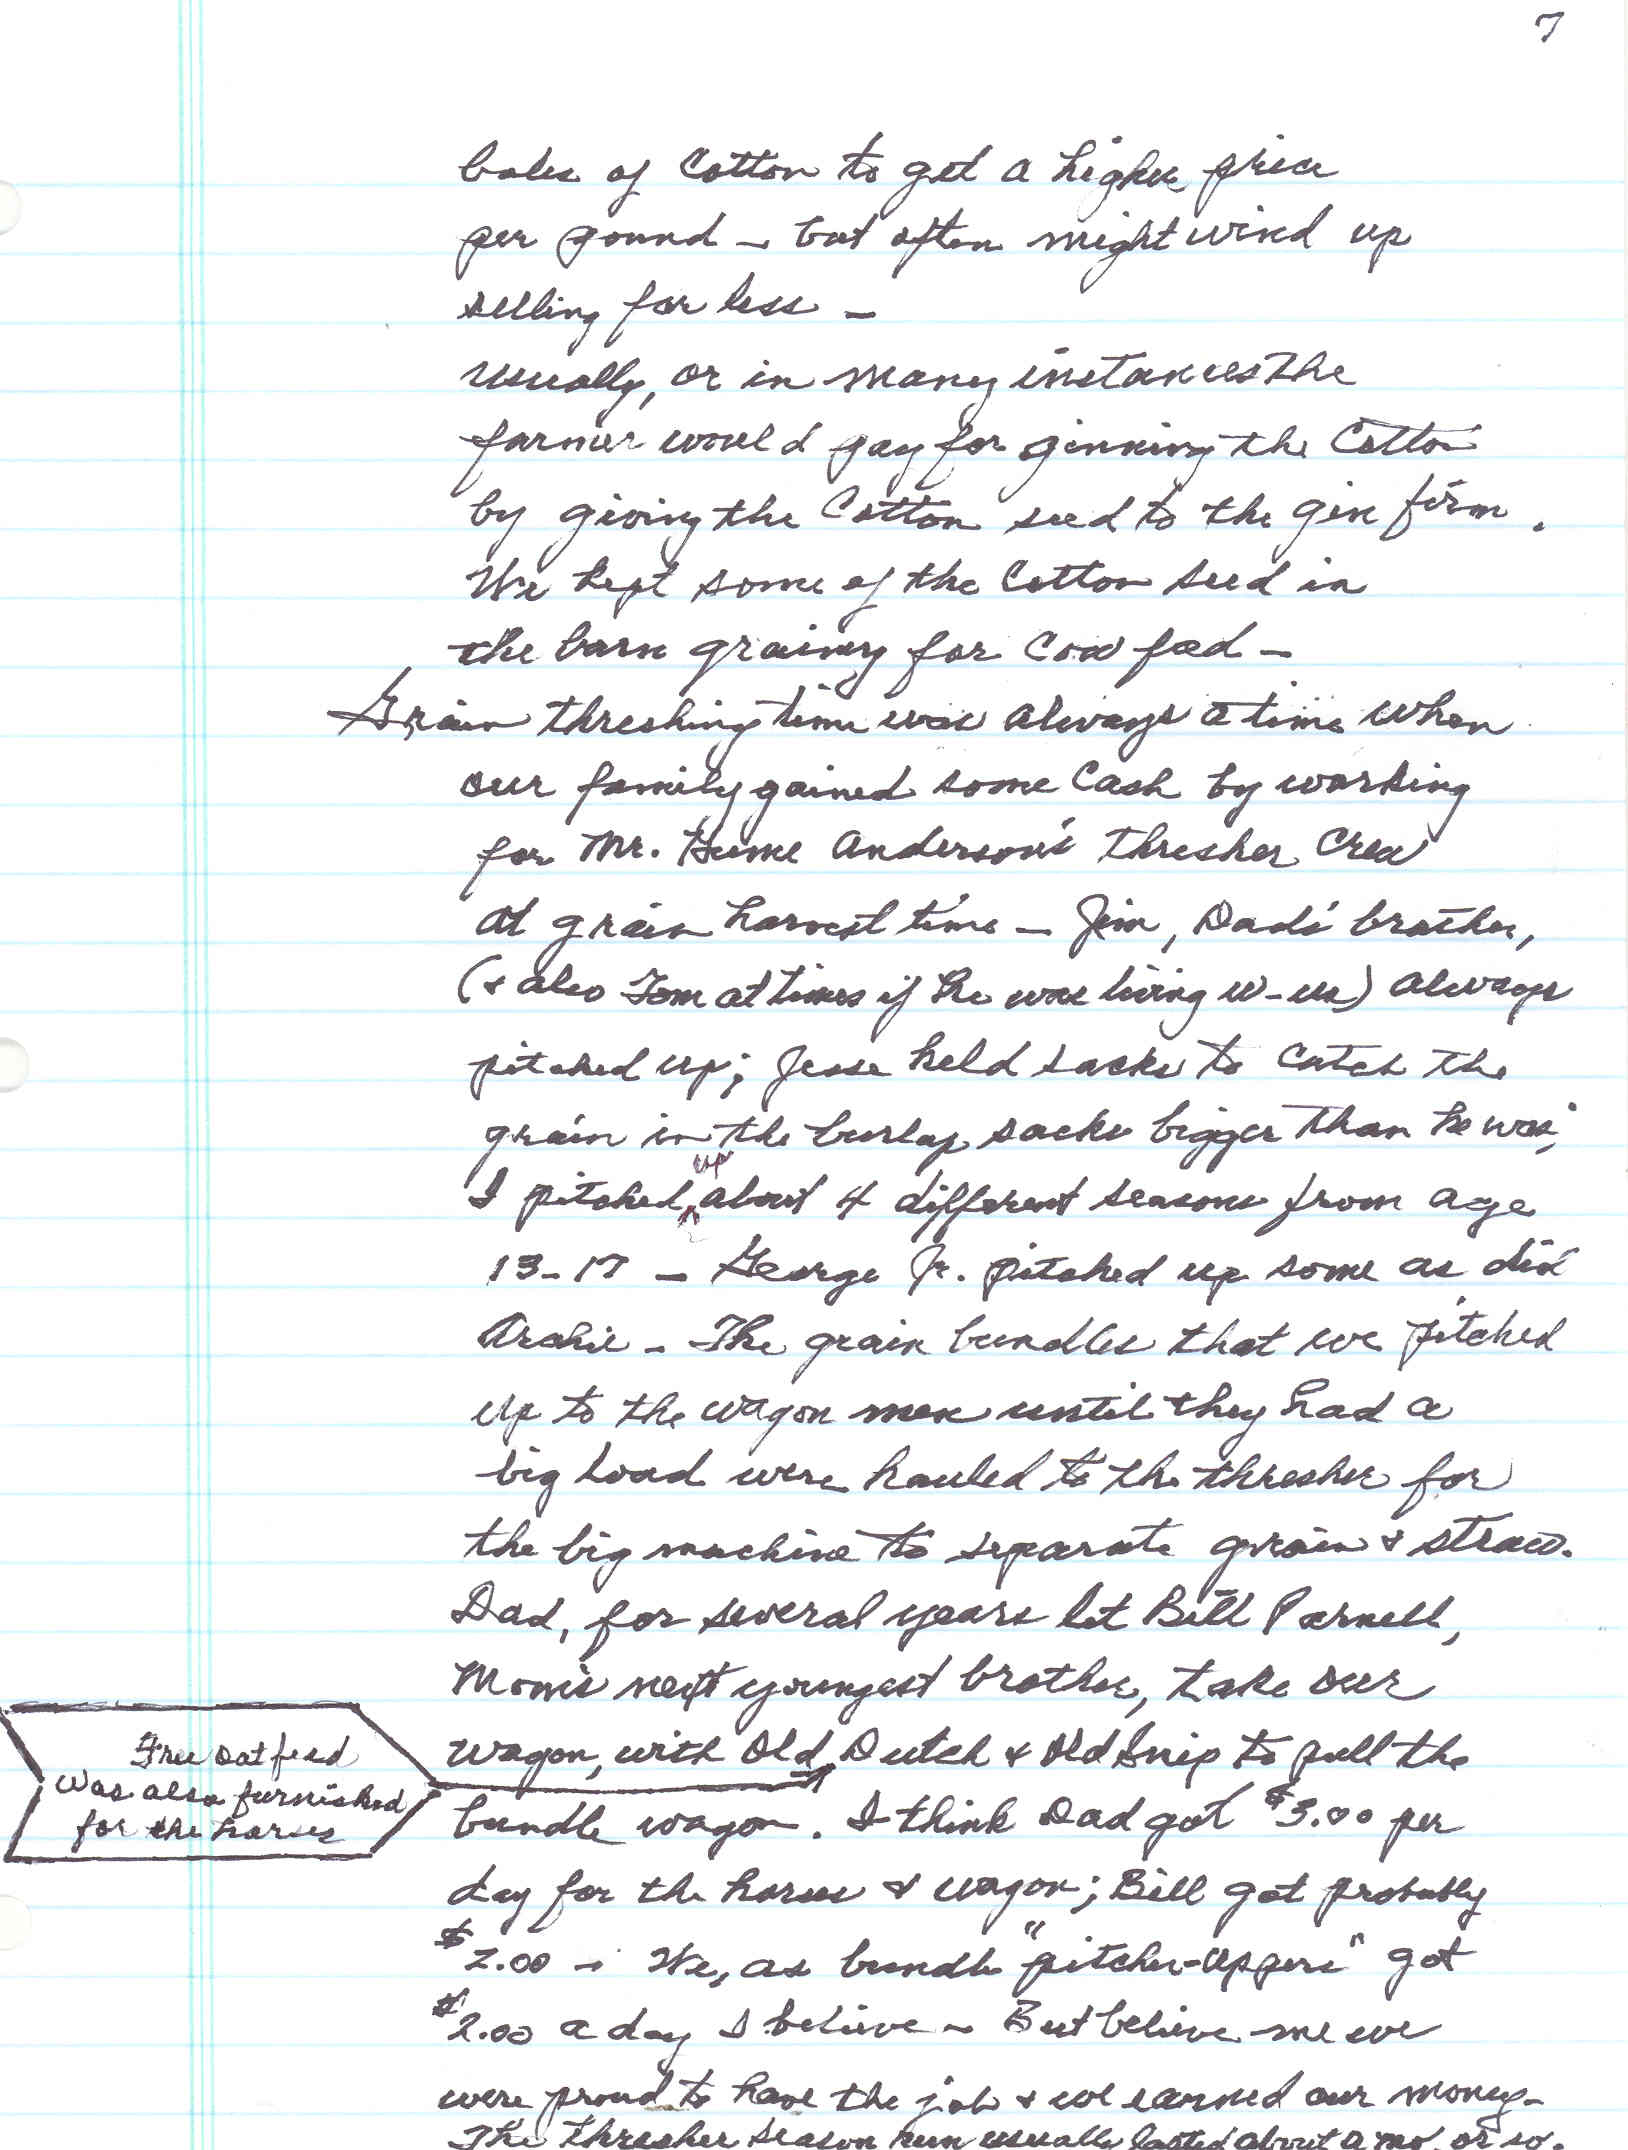 7
bales of Cotton to get a higher price
per pound - but often might wind up
selling for less -
usually, or in many instances the
farmer would pay for ginning the Cotton
by giving the Cotton seed to the gin firm.
We kept some of the Cotton seed in
the barn grainery for Cow feed -
Grain threshing time was always a time when
our family gained some Cash by working
for Mr. Hume Anderson's Thresher Crew
at grain harvest time - Jim, Dad's brother,
(& also Tom at times if he was living w-us) always
pitched up; Jesse held sacks to catch the
grain in the burlap sacks bigger than he was;
I pitched up about 4 different seasons from age
13-17 - George Jr. pitched up some as did
Archie - The grain bundles that we pitched
up to the wagon men until they had a
big load were hauled to the thresher for
the big machine to separate grain & straw.
Dad, for several years let Bill Parnell,
Mom's next youngest brother, take our
wagon, with Old Dutch & Old Snip to pull the
Free oat feed
was also furnished
for the horses
bundle wagon. I think Dad got $3.00 per
day for the horses & wagon; Bill got probably
$2.00 - We, as bundle "pitcher-uppers" got
$2.00 a day I believe - But believe me we
were proud to have the job & we earned our money -
The Thresher season run usually lasted about a mo. or so.